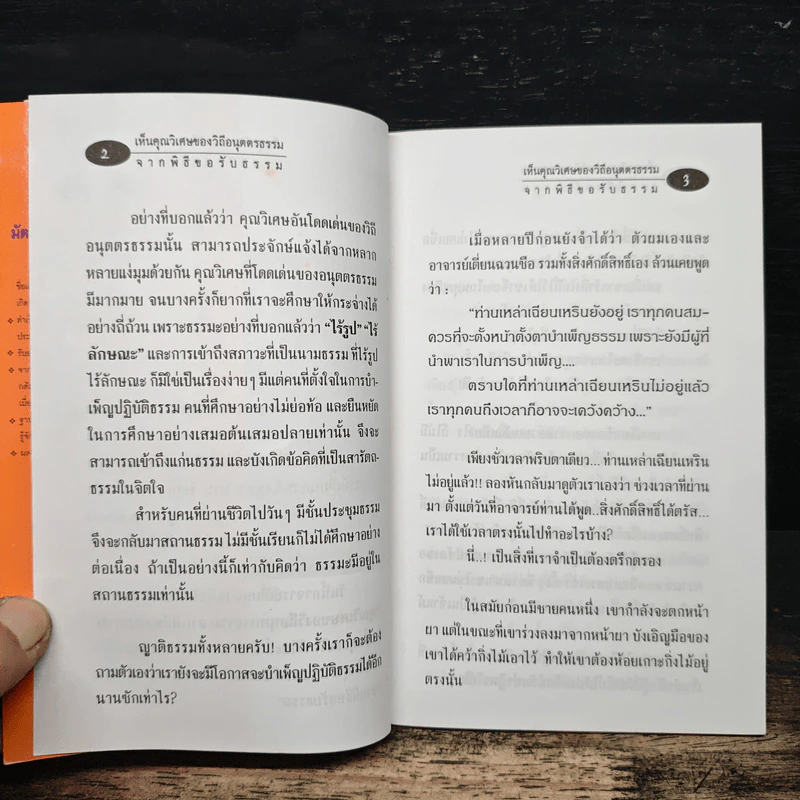 2
เห็นคุณวิเศษของวิถีอนุตตรธรรม
จากพิธีขอรับธรรม
อย่างที่บอกแล้วว่า คุณวิเศษอันโดดเด่นของวิถี
อนุตตรธรรมนั้น สามารถประจักษ์แจ้งได้จากหลาก
หลายแง่มุมด้วยกัน คุณวิเศษที่โดดเด่นของอนุตตรธรรม
มีมากมาย จนบางครั้งก็ยากที่เราจะศึกษาให้กระจ่างได้
อย่างถี่ถ้วน เพราะธรรมะอย่างที่บอกแล้วว่า “ไร้รูป” “ไร้
ลักษณะ” และการเข้าถึงสภาวะที่เป็นนามธรรม ที่ไร้รูป
ไร้ลักษณะ ก็มิใช่เป็นเรื่องง่ายๆ มีแต่คนที่ตั้งใจในการบำ-
เพ็ญปฏิบัติธรรม คนที่ศึกษาอย่างไม่ย่อท้อ และยืนหยัด
ในการศึกษาอย่างเสมอต้นเสมอปลายเท่านั้น จึงจะ
สามารถเข้าถึงแก่นธรรม และบังเกิดข้อคิดที่เป็นสารัตถ-
ธรรมในจิตใจ
สำหรับคนที่ผ่านชีวิตไปวันๆ มีชั้นประชุมธรรม
จึงจะกลับมาสถานธรรม ไม่มีชั้นเรียนก็ไม่ได้ศึกษาอย่าง
ต่อเนื่อง ถ้าเป็นอย่างนี้ก็เท่ากับคิดว่า ธรรมะมีอยู่ใน
สถานธรรมเท่านั้น
ญาติธรรมทั้งหลายครับ! บางครั้งเราก็จะต้อง
ถามตัวเองว่าเรายังจะมีโอกาสจะบำเพ็ญปฏิบัติธรรมได้อีก
นานซักเท่าไร?
เห็นคุณวิเศษของวิถีอนุตตรธรรม
จากพิธีขอรับธรรม
3
เมื่อหลายปีก่อนยังจำได้ว่า ตัวผมเองและ
อาจารย์เตี่ยนฉวนซือ รวมทั้งสิ่งศักดิ์สิทธิ์เอง ล้วนเคยพูด
ว่า :
“ท่านเหล่าเฉียนเหรินยังอยู่ เราทุกคนสม-
ควรที่จะตั้งหน้าตั้งตาบำเพ็ญธรรม เพราะยังมีผู้ที่
นำพาเราในการบำเพ็ญ....
ตราบใดที่ท่านเหล่าเฉียนเหรินไม่อยู่แล้ว
เราทุกคนถึงเวลาก็อาจจะเคว้งคว้าง...”
เพียงชั่วเวลาพริบตาเดียว... ท่านเหล่าเฉียนเหริน
ไม่อยู่แล้ว!! ลองหันกลับมาดูตัวเราเองว่า ช่วงเวลาที่ผ่าน
มา ตั้งแต่วันที่อาจารย์ท่านได้พูด..สิ่งศักดิ์สิทธิ์ได้ตรัส...
เราได้ใช้เวลาตรงนั้นไปทำอะไรบ้าง?
นี่..! เป็นสิ่งที่เราจำเป็นต้องตรึกตรอง
ในสมัยก่อนมีชายคนหนึ่ง เขากำลังจะตกหน้า
ผา แต่ในขณะที่เขาร่วงลงมาจากหน้าผา บังเอิญมือของ
เขาได้คว้ากิ่งไม้เอาไว้ ทำให้เขาต้องห้อยเกาะกิ่งไม้อยู่
ตรงนั้น